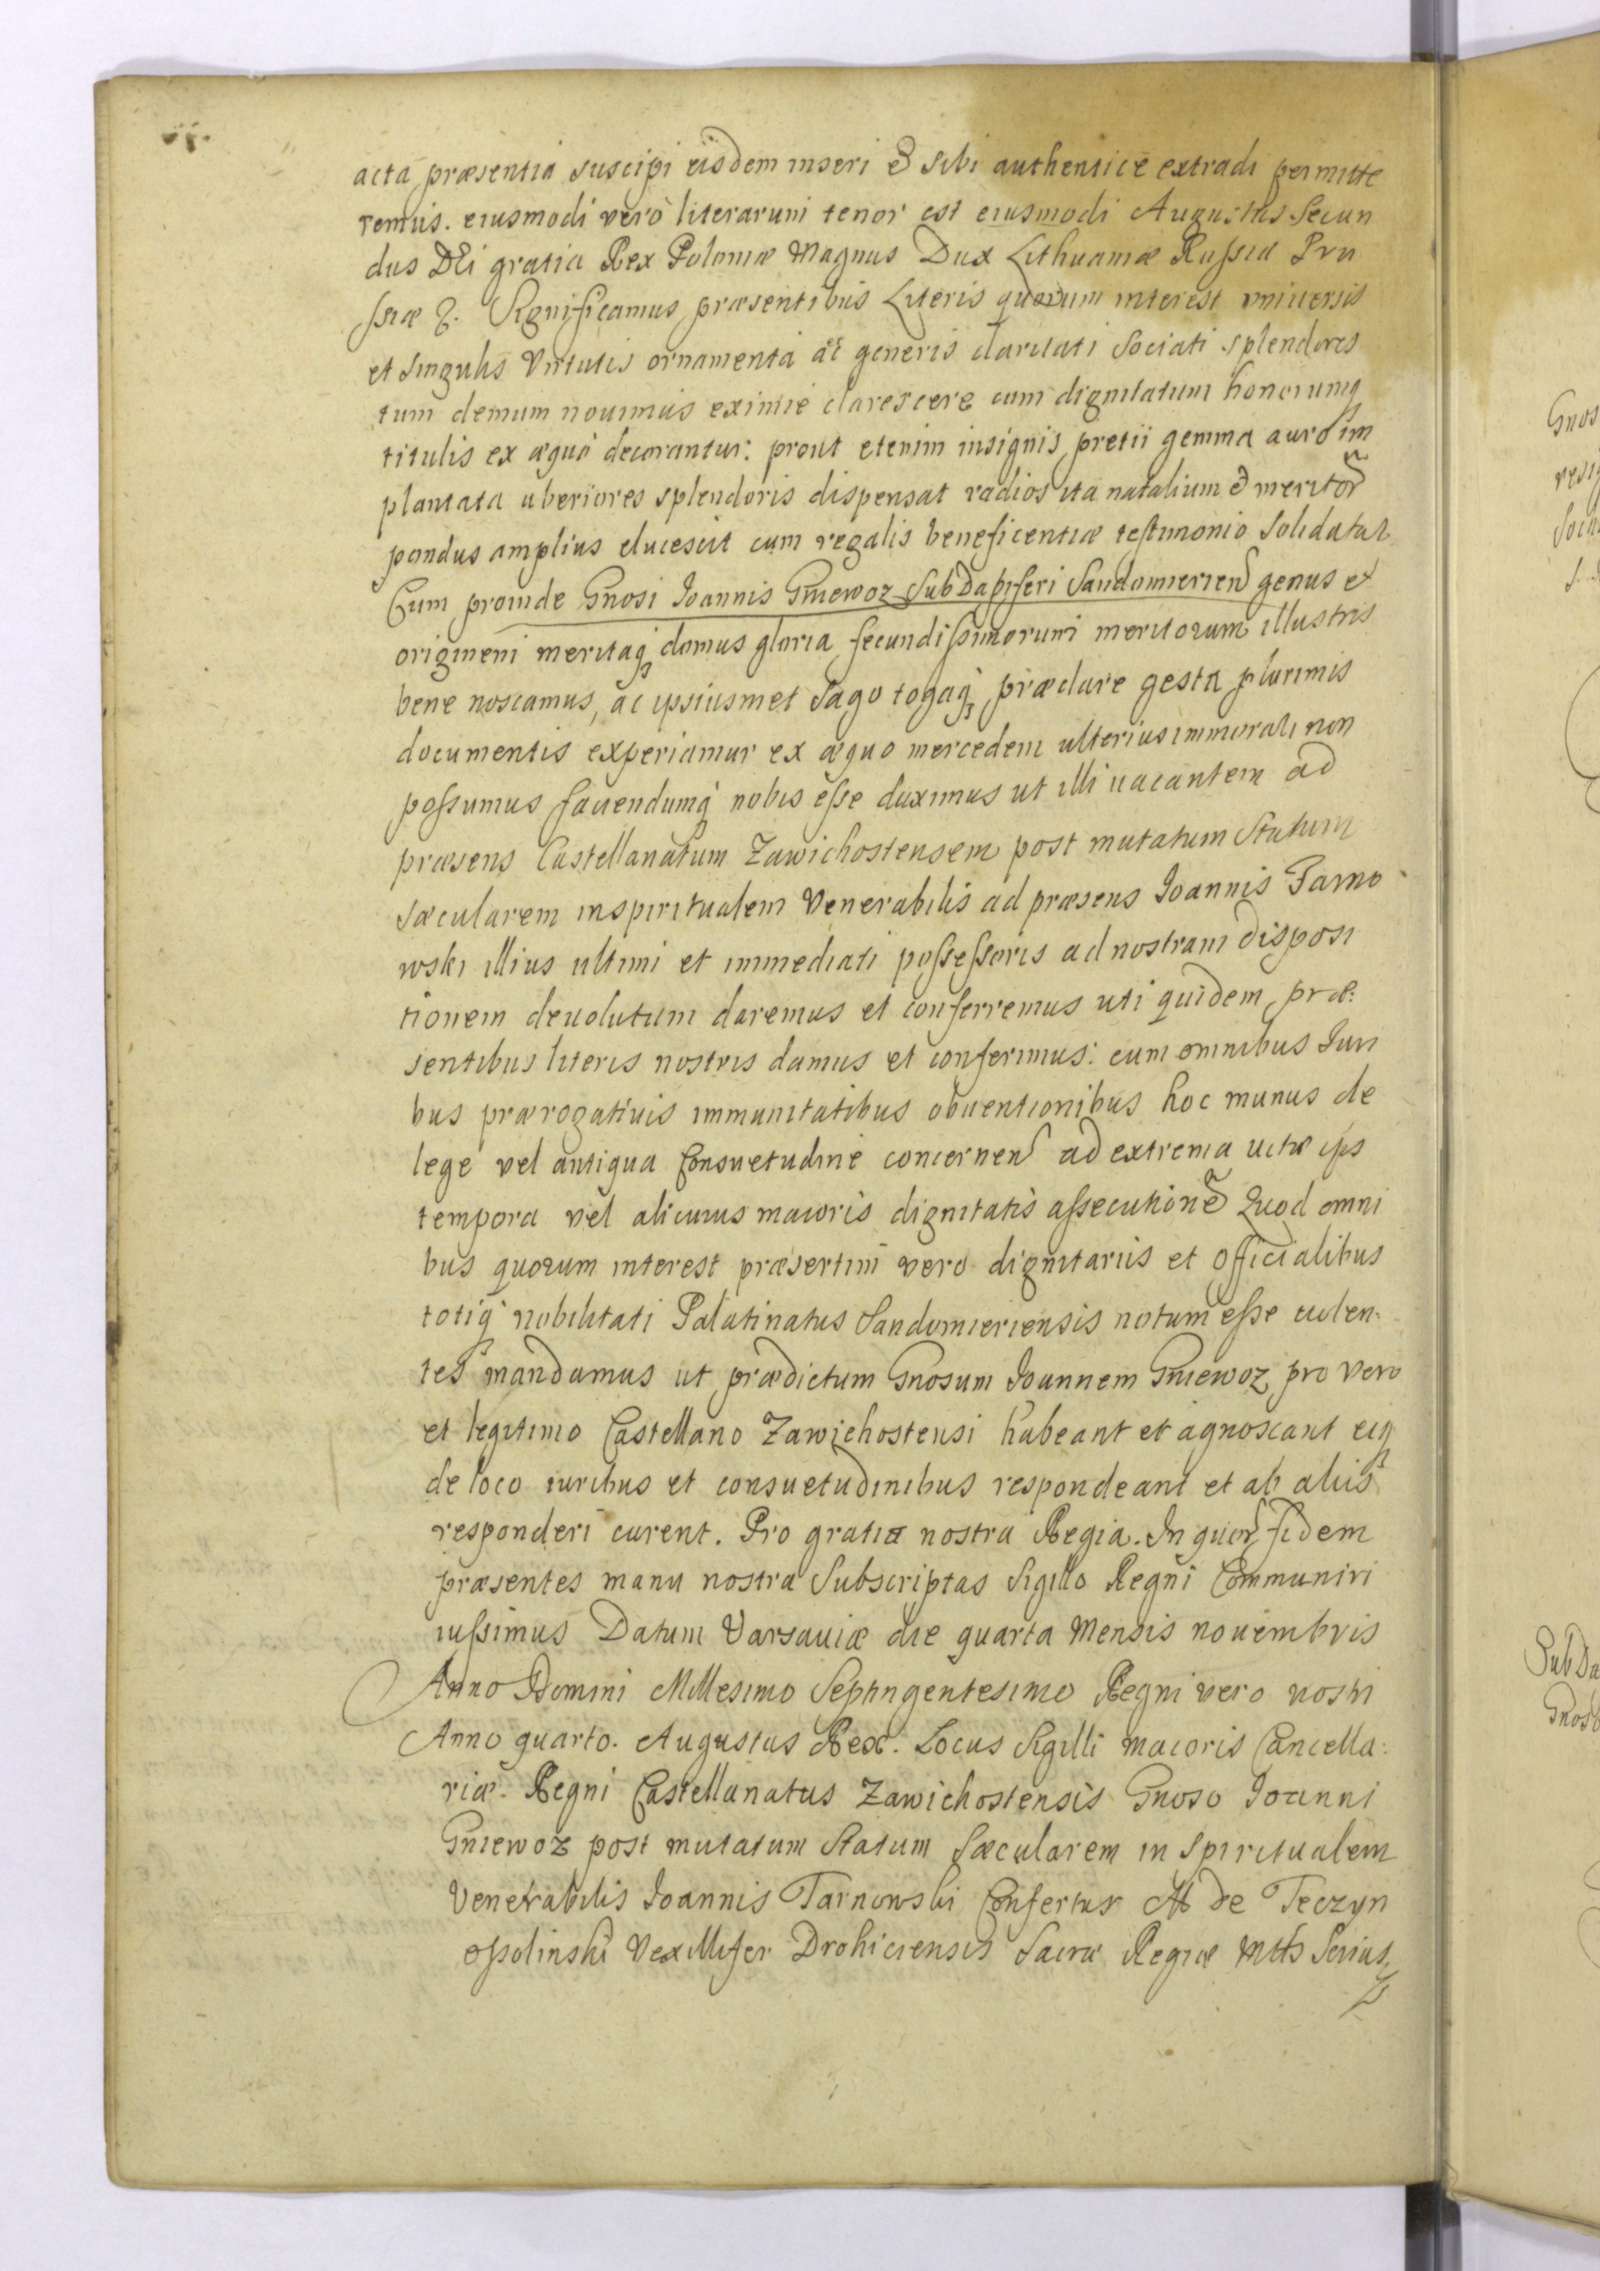 acta præsentia suscipi eisdem inseri & sibi authentice extradi permitte
remus. eiusmodi vero literarum tenor est eiusmodi Augustus Secun
dus DEi gratia Rex Poloniæ Magnus Dux Lithuaniæ Russiæ Pru
ssiæ &. Significamus præsentibus Literis quorum interest vniversis
et singulis Virtutis ornamenta ac generis claritati sociati splendores
tum demum novimus eximie clarescere cum dignitatum honorumq
titulis ex æquo decorantur: prout etenim insignis pretii gemma auro im
plantata uberiores splendoris dispensat radios ita natalium & meritor
pondus amplius elucescit cum regalis beneficentiæ testimonio solidatur
Cum proinde Gnosi Joannis Gniewoz SubDapiferi Sandomirien genus et
originem meritaq domus gloria fecundissimorum meritorum illustris
bene noscamus, ac ipsiusmet Sago togaq præclare gesta plurimis
documentis experiamur ex æquo mercedem ulterius immorari non
possumus favendumq nobis esse duximus ut illi vacantem ad
præsens Castellanatum Zawichostensem post mutatum Statum
Sæcularem in spiritualem Venerabilis ad præsens Joannis Tarno
wski illius ultimi et immediati possessoris ad nostram disposi
tionem devolutum daremus et conferremus uti quidem præ:
sentibus literis nostris damus et conferimus: cum omnibus Juri
bus prærogativis immunitatibus obventionibus hoc munus de
lege vel antiqua Consuetudine concernen ad extrema vitæ ips
tempora vel alicuius maioris dignitatis assecutione Quod omni
bus quorum interest præsertim vero dignitariis et Officialibus
totiq nobilitati Palatinatus Sandomiriensis notum esse volen-
tes mandamus ut prædictum Gnosum Joannem Gniewoz pro vero
et legitimo Castellano Zawichostensi habeant et agnoscant eiq
de loco iuribus et consuetudinibus respondeant et ab aliis
responderi curent. Pro gratia nostra Regia. In quor fidem
præsentes manu nostra Subscriptas Sigillo Regni Communiri
iussimus Datum Varsaviæ die quarta Mensis novembris
Anno Domini Millesimo Septingentesimo Regni vero nostri
Anno quarto. Augustus Rex. Locus Sigilli maioris Cancella:
riæ. Regni Castellanatus Zawichostensis Gnoso Joanni
Gniewoz post mutatum Statum Sæcularem in Spiritualem
Venerabilis Joannis Tarnowski Confertur M de Teczyn
Ossolinski Vexillifer Drohiciensis Sacræ Regiæ Mttis Scrius